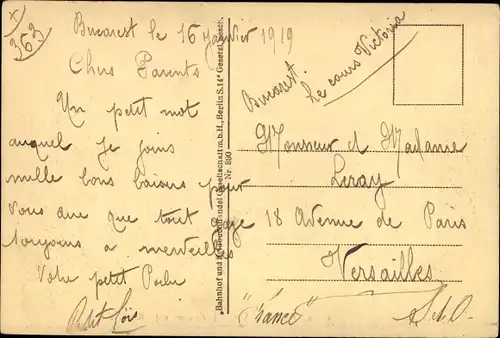 x
363
Bucarest le 16 Janvier 1919
Chers Parents
Un petit mot
auquel je joins
mille bons baisers pour
vous dire que tout gaze
toujours a merveilles
Votre petit Poilu
Petit
"Bahnhof und Gesellschaft m.b.H., Berlin S.14" Gesetzl. gesch.
Nr. 890
Bucarest.
le cours Victoria
Monsieur et Madame
Leray
18 Avenue de Paris
Versailles
"France" S.&O.